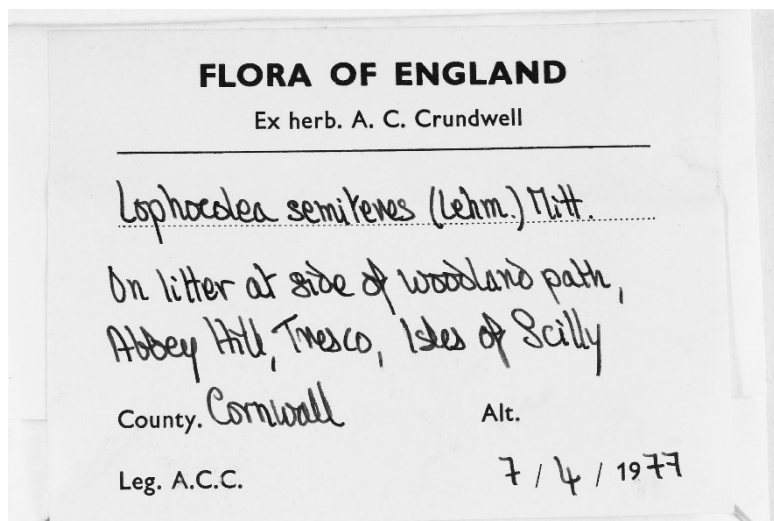 FLORA OF ENGLAND
Ex herb. A. C. Crundwell
Lophocolea semiteres (Lehm.) Mitt.
On litter at side of woodland path,
Abbey Hill, Tresco, Isles of Scilly
County. Cornwall Alt.
Leg. A.C.C. 7 / 4 / 1977